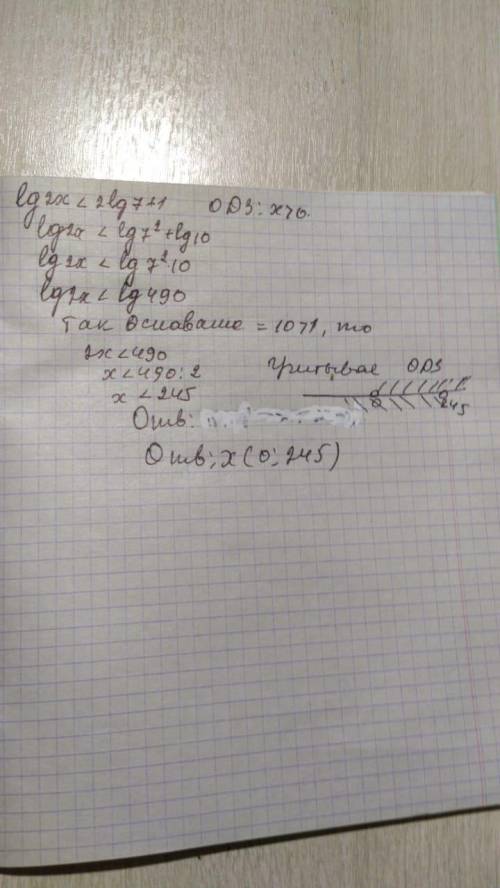 lg2x < 2lg7+1 ОДЗ: x>0.
lg2x < lg7²+lg10
lg2x < lg7²·10
lg2x < lg490
Так основание = 10>1, то
2x<490
x<490:2
x<245
Учитывае ОДЗ
0 245
Отв:
Отв: x(0; 245)